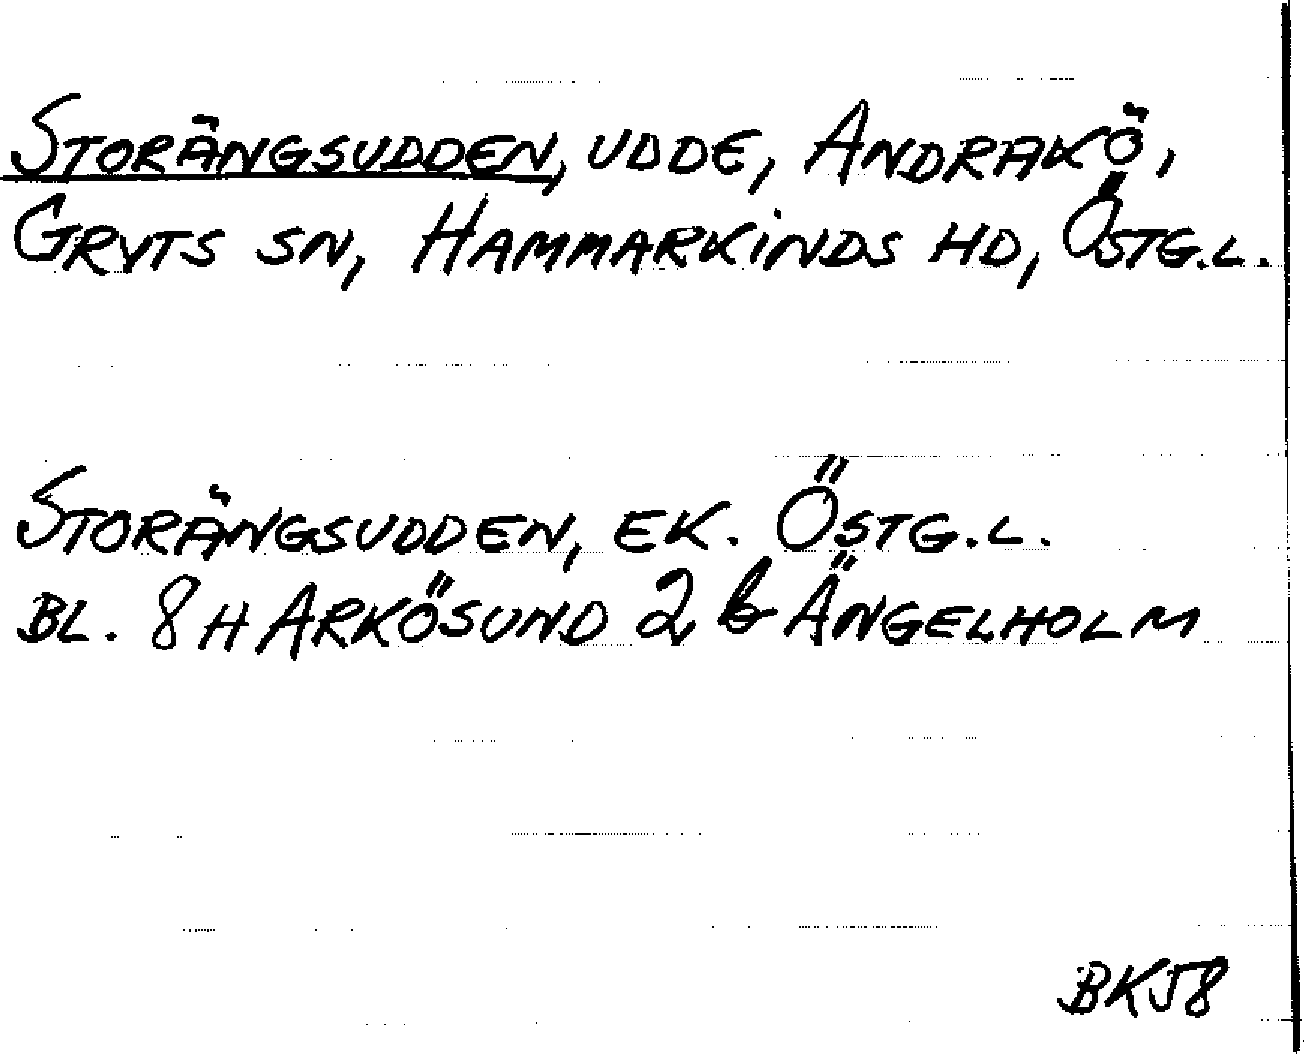 STORÄNGSUDDEN, UDDE, ANDRAKÖ,
GRYTS SN, HAMMARKINDS HD, ÖSTG.L.
STORÄNGSUDDEN, EK. ÖSTG.L.
BL. 8H ARKÖSUND 2 b ÄNGELHOLM
BKJ8